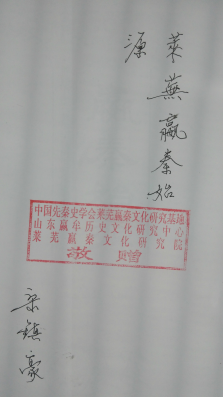 萊蕪嬴秦始
源
中国先秦史学会莱芜嬴秦文化研究基地
山东嬴牟历史文化研究中心
莱芜嬴秦文化研究院
敬赠
宋鎮豪